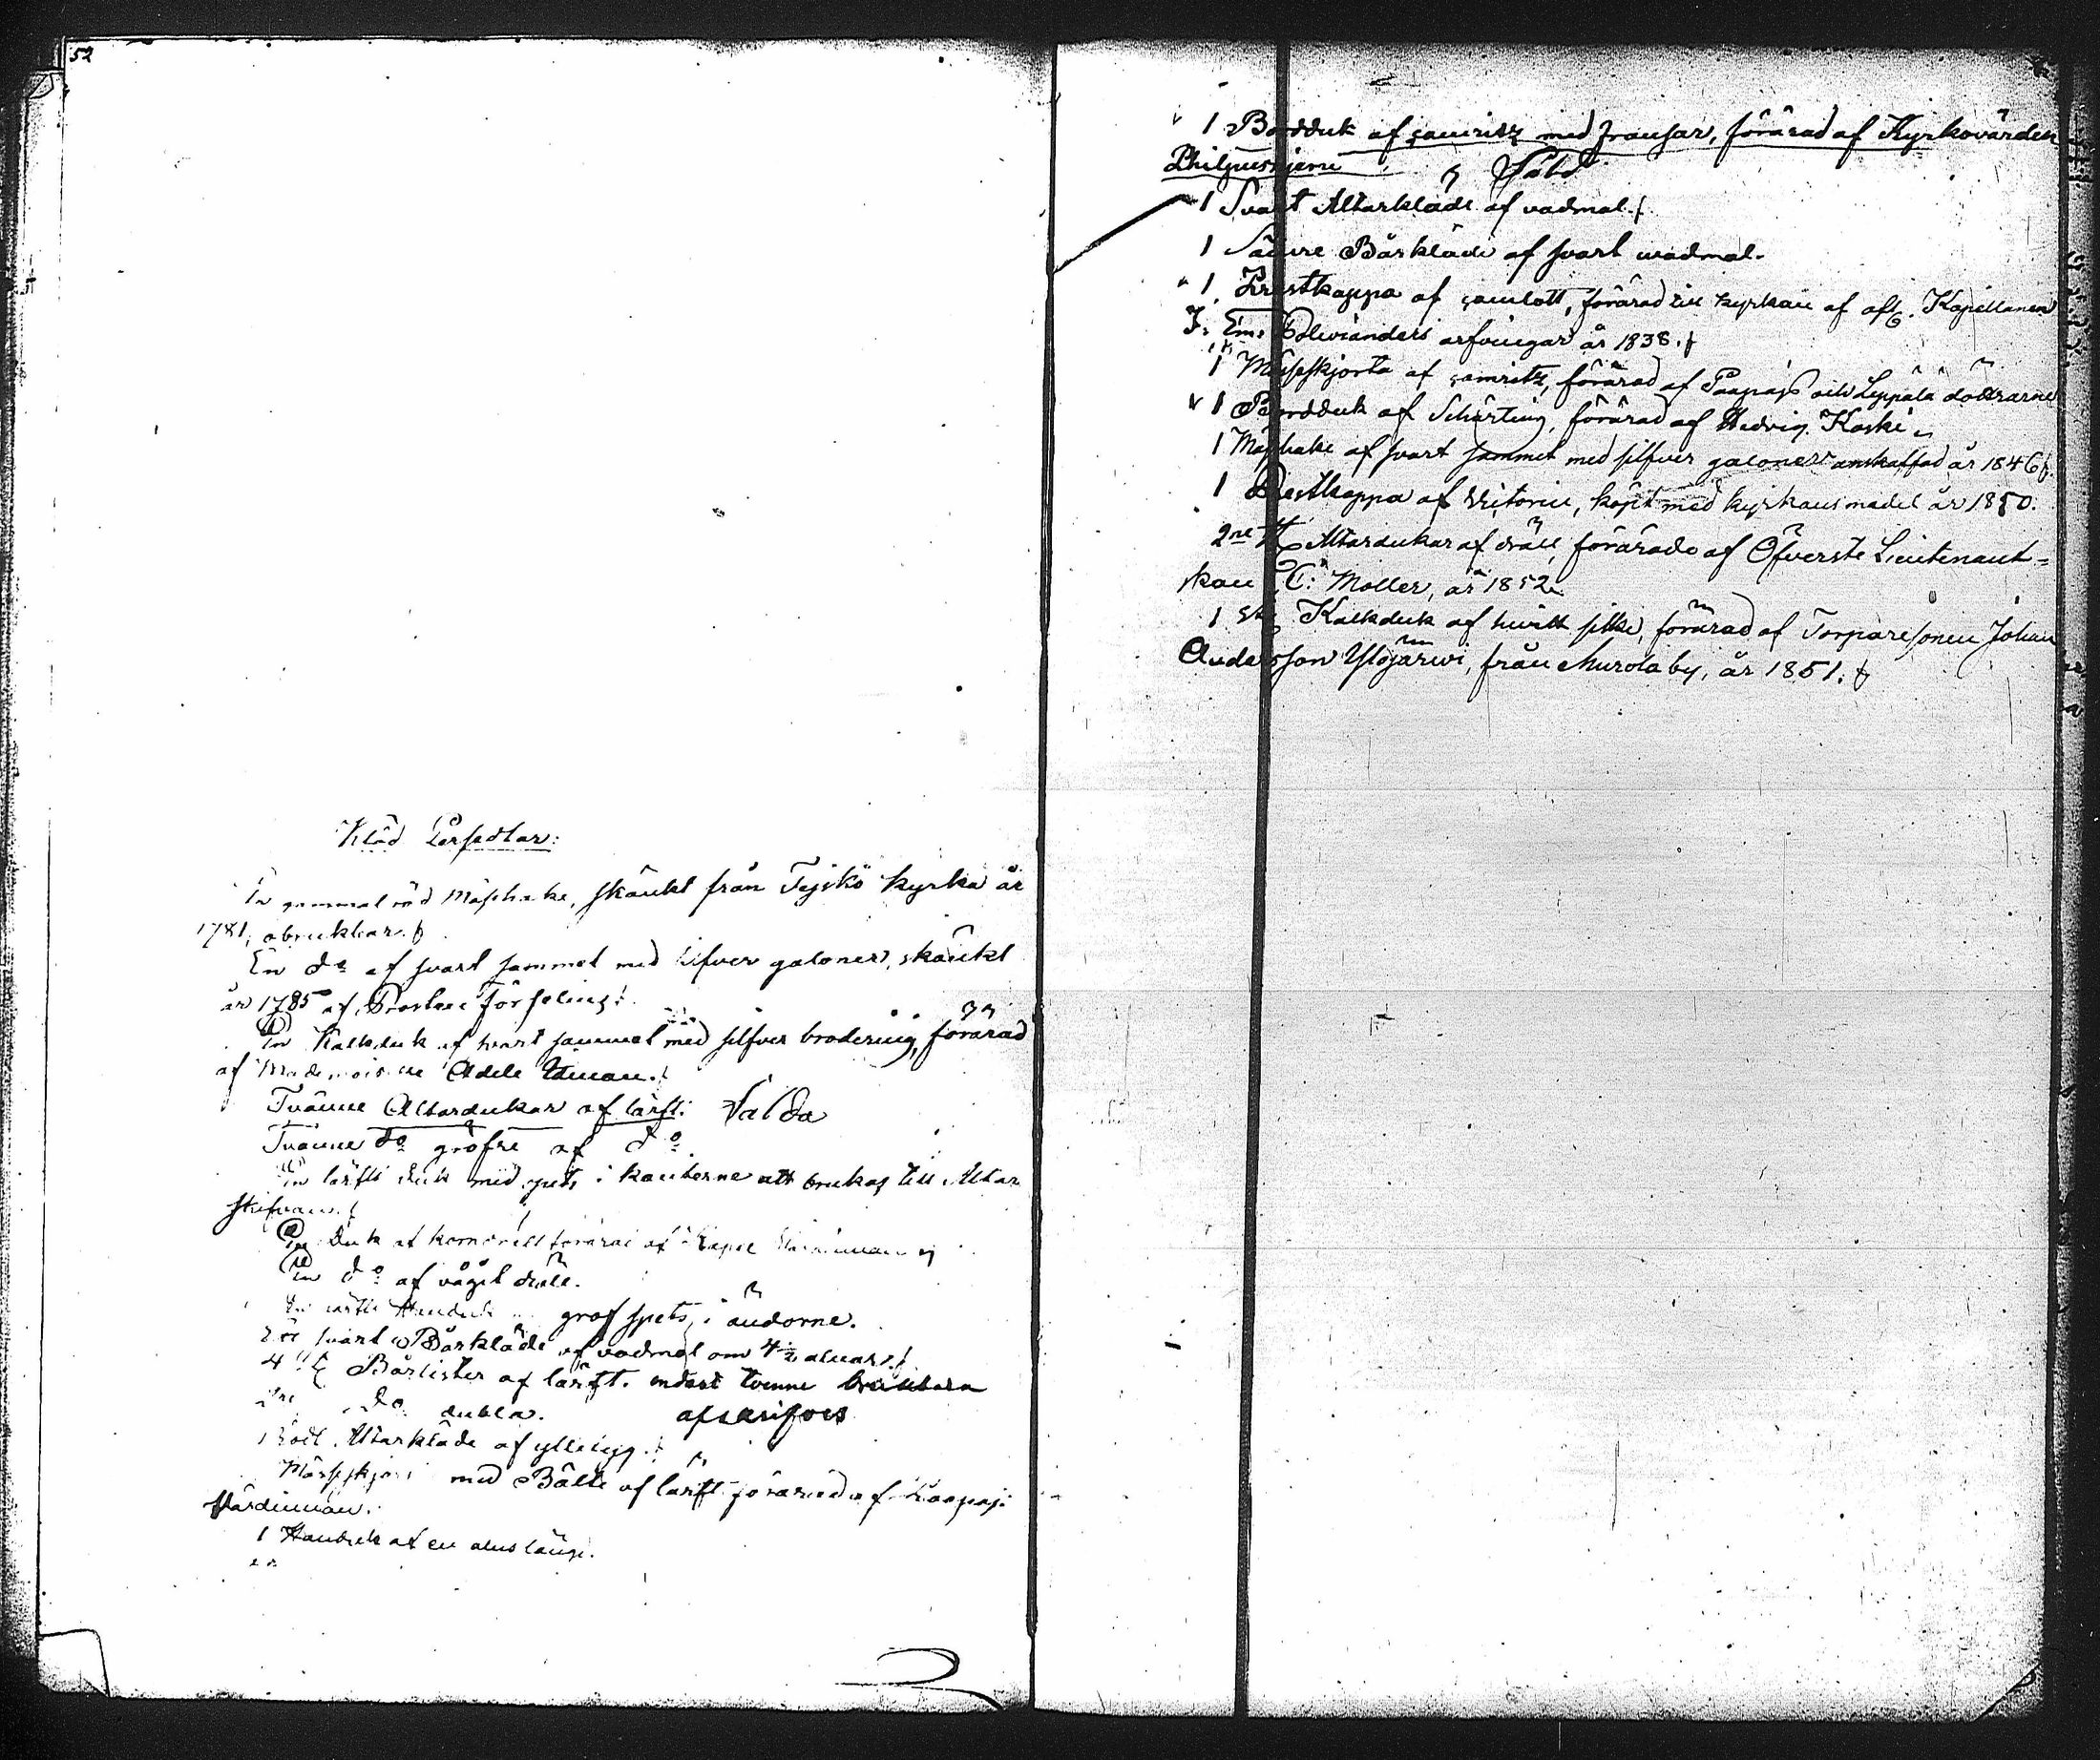 52
Kläd Persedlar:
En gammal röd Mässhake, skänkt från Tejsko kyrka år
1781, obrukbar.
En do af svart sammet med silfver galoner, skänkt
år 1785 af Prosten Forseling.
En Kalkduk af svart sammet med silfver brodering, förärad
af Mademoiselle Adele Edman.
Tvänne Altardukar af lärft. Sålda
Tvänne do gröfre af do
En lärfts duk med spets i kanterne att brukas till Altar
skifvan.
En Duk af förärad af
En do af vågit dräll.
En lärfts Handduk grof spets i ändorne.
Ett svart Bårkläde af vadmal om 4½ alnar.
4 st Bårlister af lärft. endast tvenne brukbara
2ne do dubla. afskrifves
1 rödt Altarkläde af ylletyg.
Mässskjorta med Bälte af lärft förärad af Kaapaji
Värdinnan.
1 Handduk af en alns längd.
1 Bordduk af camritz med fransar, förärad af Kyrkovärden
Philpusstjerni Såld
1 Svart Altarkläde af vadmal.
1 Sämre Bårkläde af svart wadmal.
1 Prestkappa af camlott, förärad till kyrkan af afl. Kapellanen
J. Em. Polviander's arfvingar år 1838.
1 Mässskjorta af camritz, förärad af och Leppälä döttrarne
1 Bordduk af Schirting, förärad af Hedvig Koski
1 Mässhake af svart sammet med silfver galoner anskaffad år 1846.
1 Prestkappa af, köpt med kyrkans medel år 1850.
2ne st Altardukar af dräll, förärade af Öfverste Lieutenant-
skan C. Möller, år 1852
1 st Kalkduk af hvitt silke, förärad af Torparesonen Johan
Andersson Ylöjärwi, från Murola by, år 1851.